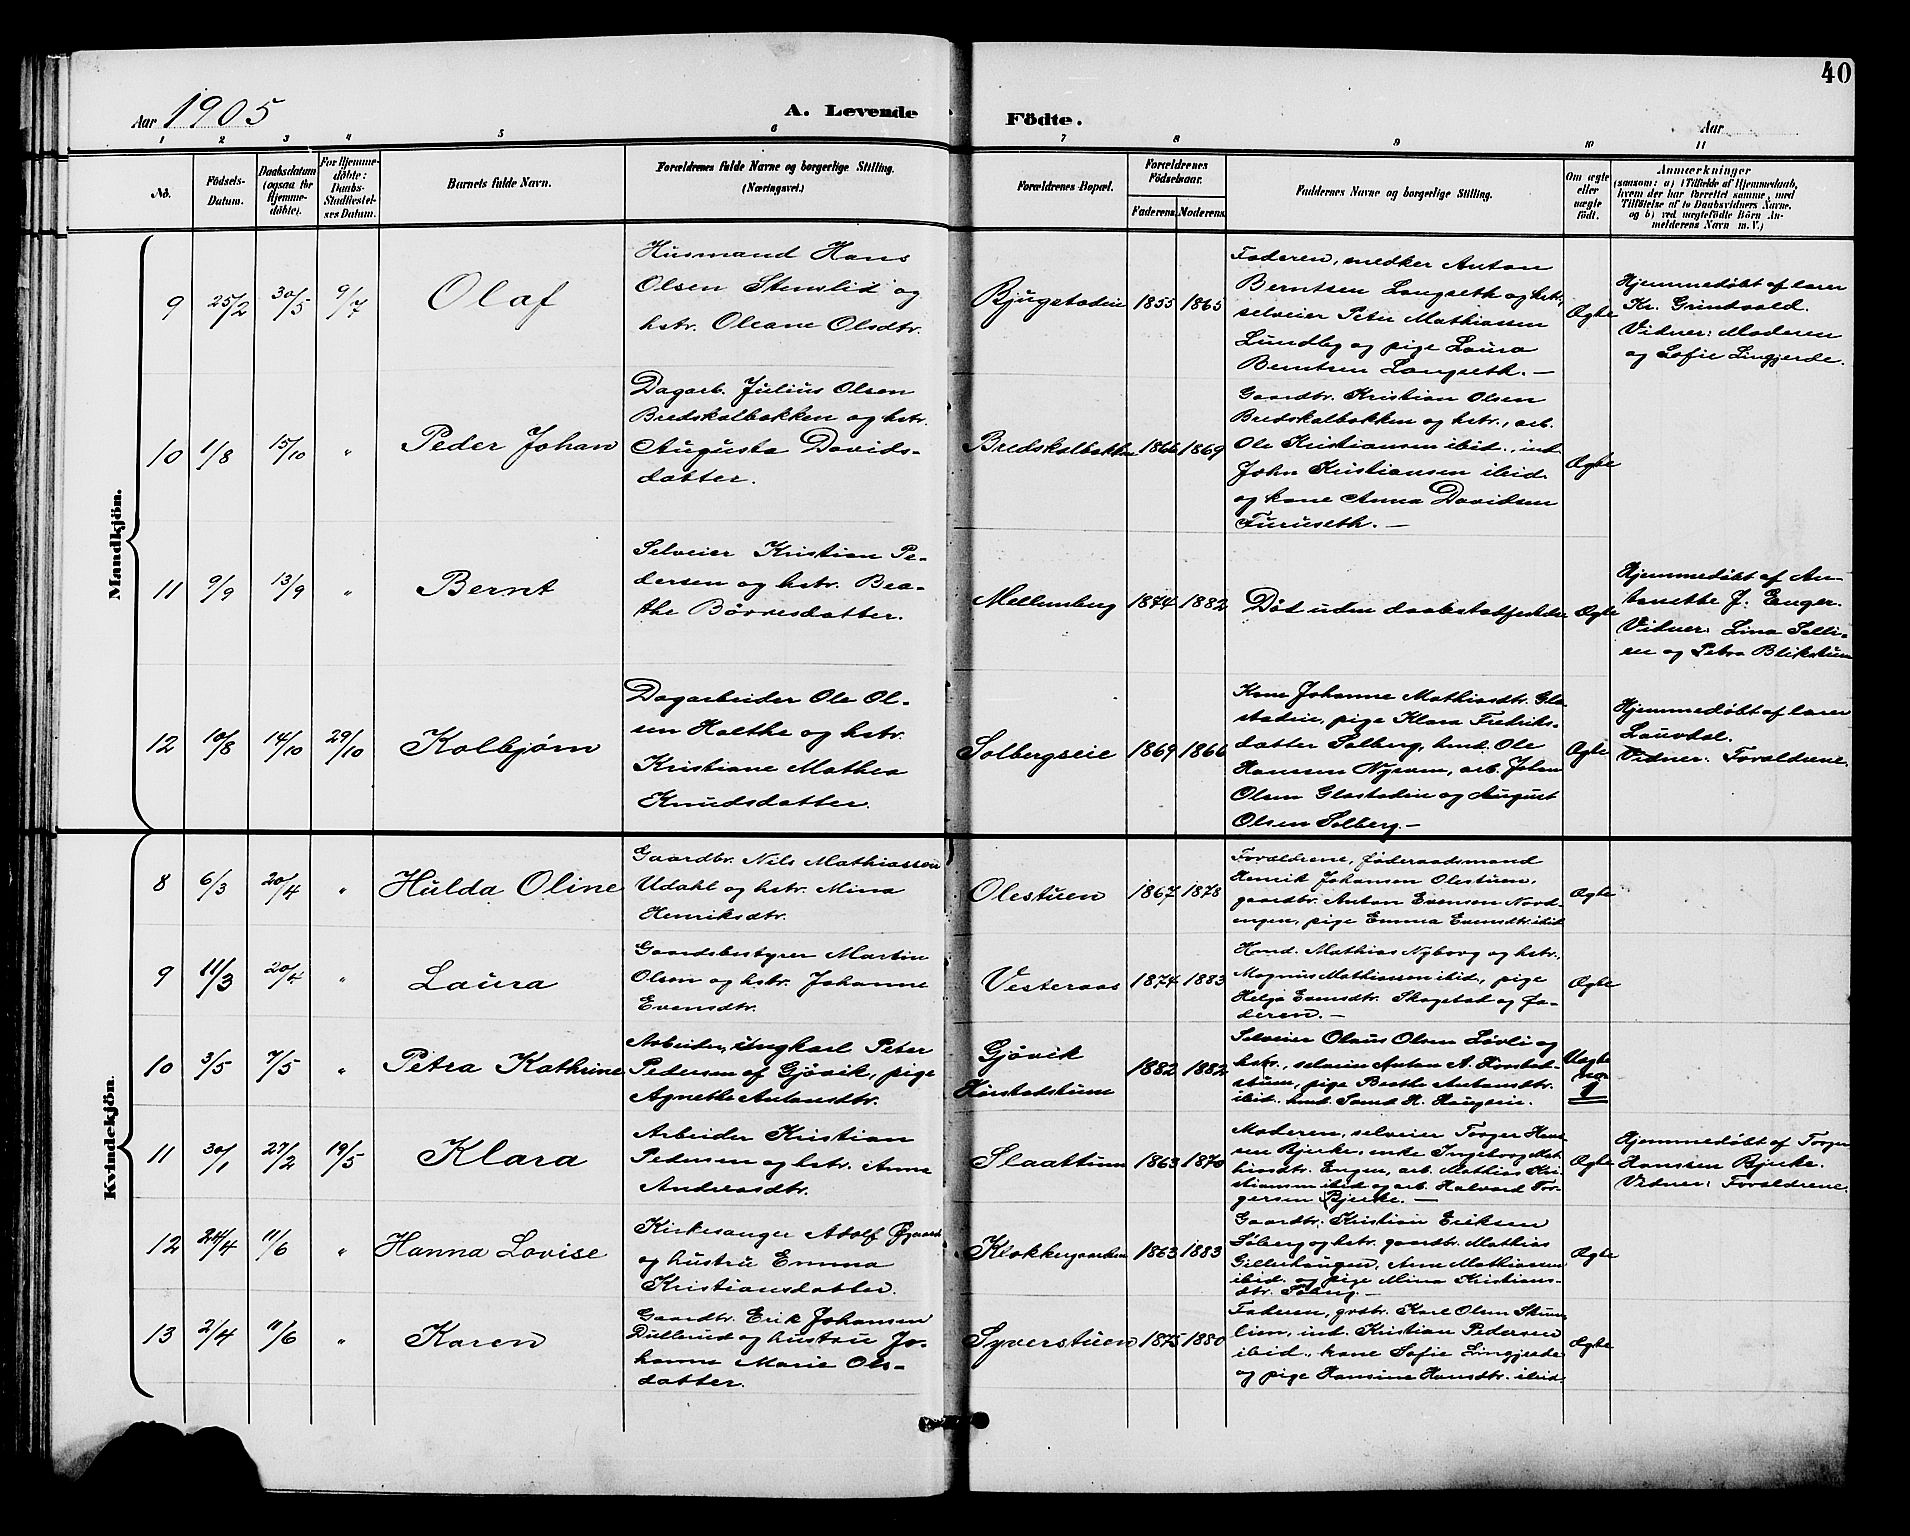 40
Aar 1905
A. Levende
Födte.
Aar
1 2 3 4 5 6 7 8 9 10 11
No.
Födsels-
Datum.
Daabsdatum
(ogsaa for
Hjemme-
döbte).
For Hjemme-
döbte:
Daabs-
Stadfæstel-
ses Datum.
Barnets fulde Navn.
Forældrenes fulde Navne og borgerlige Stilling.
(Næringsvei.)
Forældrenes Bopæl.
Forældrenes
Fødselsaar.
Faderens. Moderens.
Faddernes Navne og borgerlige Stilling.
Om ægte
eller
uægte
født.
Anmærkninger
(saasom: a) i Tilfælde af Hjemmedaab,
hvem der har forrettet samme, med
Tilföielse af to Daabsvidners Navne.
og b) ved uægtefödte Börn An-
melderens Navn m. V.)
Mandkjön.
9 25/2 30/5 9/7 Olaf
Husmand Hans
Olsen Stenslid og
hstr. Oleane Olsdtr.
Bjugstadeie 1855 1865
Faderen, snedker Anton
Berntsen Langseth og hstr.,
selveier Peter Mathiassen
Lundby og pige Laura
Berntsen Langseth. —
Ægte
Hjemmedøbt af lærer
Kr. Grindvold.
Vidner: Moderen
og Sofie Lingjerde.
10 1/8 15/10 " Peder Johan
Dagarb. Julius Olsen
Bredskalbakken og hstr.
Augusta Davids-
datter.
Bredskalbakken 1866 1869
Gaardbr. Kristian Olsen
Bredskalbakken og hstr., arb.
Ole Kristiansen ibid., ind.
John Kristiansen ibid.
og kone Anna Davidsen
Furuseth. —
Ægte
11 9/9 13/9 " Bernt
Selveier Kristian Pe-
dersen og hstr. Bea-
the Børresdatter.
Mellumberg 1874 1882
Død uden daabstadfestelse
Ægte
Hjemmedøbt af An-
tonette J. Enger.
Vidner: Lina Solli-
en og Petra Blikstuen
12 10/8 14/10 29/10 Kolbjørn
Dagarbeider Ole Ol-
sen Holthe og hstr.
Kristiane Mathea
Knudsdatter.
Solbergseie 1869 1866
Kone Johanne Mathiasdtr. Gla-
stadeie, pige Klara Fredriks-
datter Solberg, hmd. Ole
Hanssen Nysveen, arb. Johan
Olsen Glastadeie og August
Olsen Solberg. —
Ægte
Hjemmedøbt af lærer
Lauvdal.
Vidner: Forældrene.
Kvindekjön.
8 6/3 20/4 " Hulda Oline
Gaardbr. Nils Mathiassen
Udahl og hstr. Mina
Henriksdtr.
Olestuen 1867 1878
Forældrene, føderaadsmand
Henrik Johansen Olestuen,
gaardbr. Anton Evensen Nord-
engen, pige Emma Evensdtr. ibid.
Ægte
9 11/3 20/4 " Laura
Gaardsbestyrer Martin
Olsen og hstr. Johanne
Evensdtr.
Vesteraas 1874 1883
Hmd. Mathias Nyborg og hstr.,
Magnus Mathiassen ibid., pige
Helga Evensdtr. Skogstad og fa-
deren. —
Ægte
10 3/5 7/5 " Petra Kathrine
Arbeider, ungkarl Peter
Pedersen af Gjøvik, pige
Agnethe Antonsdtr.
Gjøvik
Hørstadstuen
1882 1882
Selveier Olaus Olsen Løvli og
hstr., selveier Anton A. Hørstad-
stuen, pige Berthe Antonsdtr.
ibid. hmd. H. Haugseie.
Uægte
11 30/1 27/2 19/5 Klara
Arbeider Kristian
Pedersen og hstr. Anne
Andreasdtr.
Slaattum 1863 1870
Moderen, selveier Torger Hans-
sen Bjerke, enke Ingeborg Mat-
hiasdtr. Engen, arb. Mathias Kri-
stiansen ibid og arb. Halvard Tor-
gersen Bjerke. —
Ægte
Hjemmedøbt af Torger
Hanssen Bjerke.
Vidner: Forældrene.
12 24/4 11/6 " Hanna Lovise
Kirkesanger Adolf Øgaard
og hustru Emma
Kristiansdatter.
Klokkergaarden 1863 1883
Gaardbr. Kristian Eriksen
Søberg og hstr. gaardbr. Mathias
Gillerhaugen, Anne Mathiassen
ibid. og pige Mina Kristians-
dtr. Søberg. —
Ægte
13 2/4 11/6 " Karen
Gaardbr. Erik Johansen
Dullerud og hustru Jo-
hanne Marie Ols-
datter.
Syverstuen 1875 1880
Faderen, grdbr. Karl Olsen Skum-
lien, ind. Kristian Pedersen
ibid., kone Sofie Lingjerde
og pige Hansine Hansdtr. ibid.
Ægte